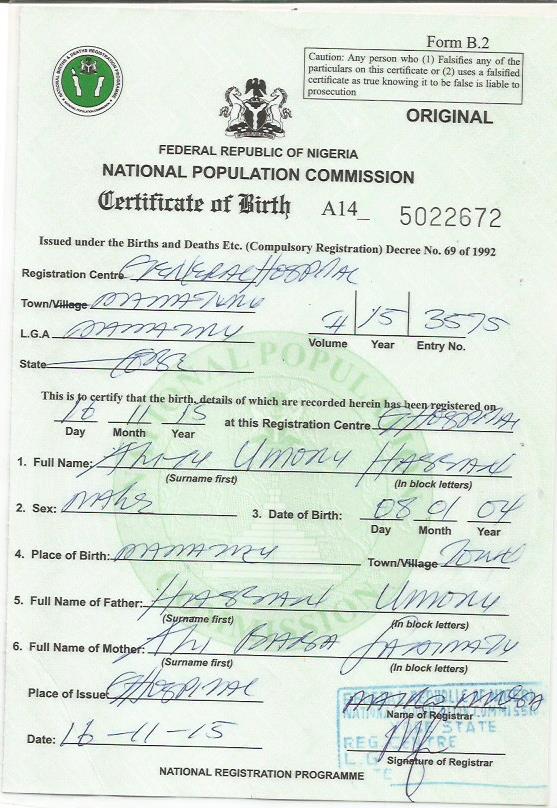 NATIONAL BIRTHS & DEATHS REGISTRATION PROGRAMME
Form B.2
Caution: Any person who (1) Falsifies any of the particulars on this certificate or (2) uses a falsified certificate as true knowing it to be false is liable to prosecution
ORIGINAL
FEDERAL REPUBLIC OF NIGERIA
NATIONAL POPULATION COMMISSION
Certificate of Birth A14_ 5022672
Issued under the Births and Deaths Etc. (Compulsory Registration) Decree No. 69 of 1992
Registration Centre GENERAL HOSPITAL
Town/Village
L.G.A
4 15 3575
Volume Year Entry No.
State YOBE
This is to certify that the birth, details of which are recorded herein has been registered on
16 11 15 at this Registration Centre G/HOSPITAL
Day Month Year
1. Full Name: UMORU HASSAN
(Surname first) (In block letters)
2. Sex: MALE 3. Date of Birth: 08 01 04
Day Month Year
4. Place of Birth: Town/Village TOWN
5. Full Name of Father: HASSAN UMORU
(Surname first) (In block letters)
6. Full Name of Mother:
(Surname first) (In block letters)
Place of Issue G/HOSPITAL
Name of Registrar
Date: 16-11-15
Signature of Registrar
NATIONAL REGISTRATION PROGRAMME